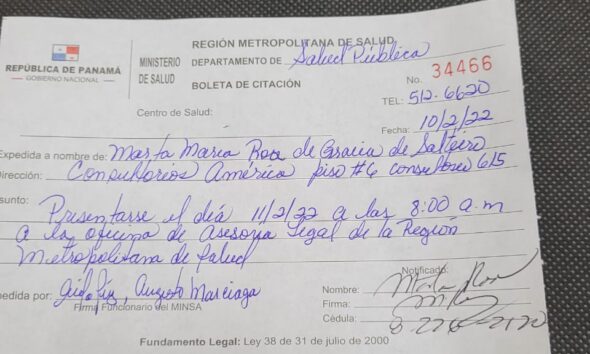 REGIÓN METROPOLITANA DE SALUD
REPÚBLICA DE PANAMÁ
GOBIERNO NACIONAL
MINISTERIO
DE SALUD
DEPARTAMENTO DE Salud Pública
BOLETA DE CITACIÓN
No. 34466
TEL: 512-6620
Centro de Salud:
Fecha: 10/2/22
Expedida a nombre de: Marta María Roa de Gracia de
Dirección: Consultorios América piso #6 consultorio 615
sunto: Presentarse el día 11/2/22 a las 8:00 a.m
a la oficina de Asesoría Legal de la Región
Metropolitana de Salud
Notificado:
edida por: Augusto Marciaga
Nombre: Marta
Firma Funcionario del MINSA
Firma:
Cédula:
Fundamento Legal: Ley 38 de 31 de julio de 2000